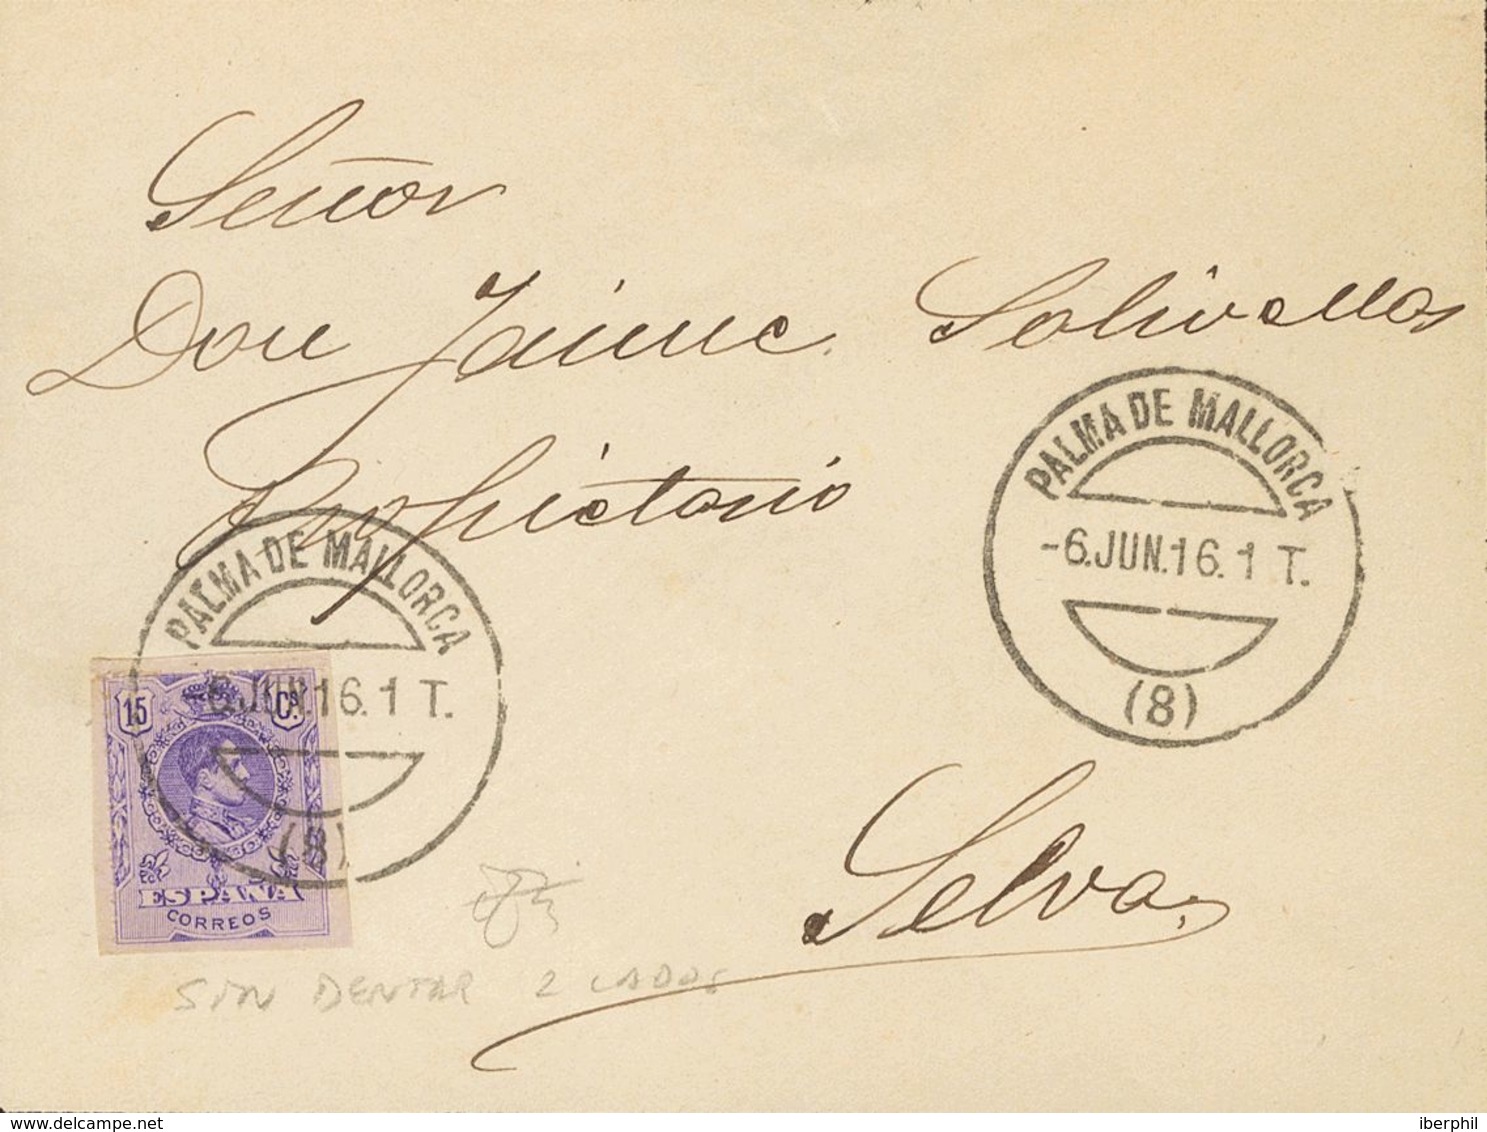 Señor
Don Jaime Solivellas
Propietario
PALMA DE MALLORCA
-6.JUN.16.1 T.
(8)
PALMA DE MALLORCA
-6.JUN.16.1 T.
(8)
15 Cs
ESPAÑA
CORREOS
Selva
SIN DENTAR 2 LADOS
delcampe.net
iberphil